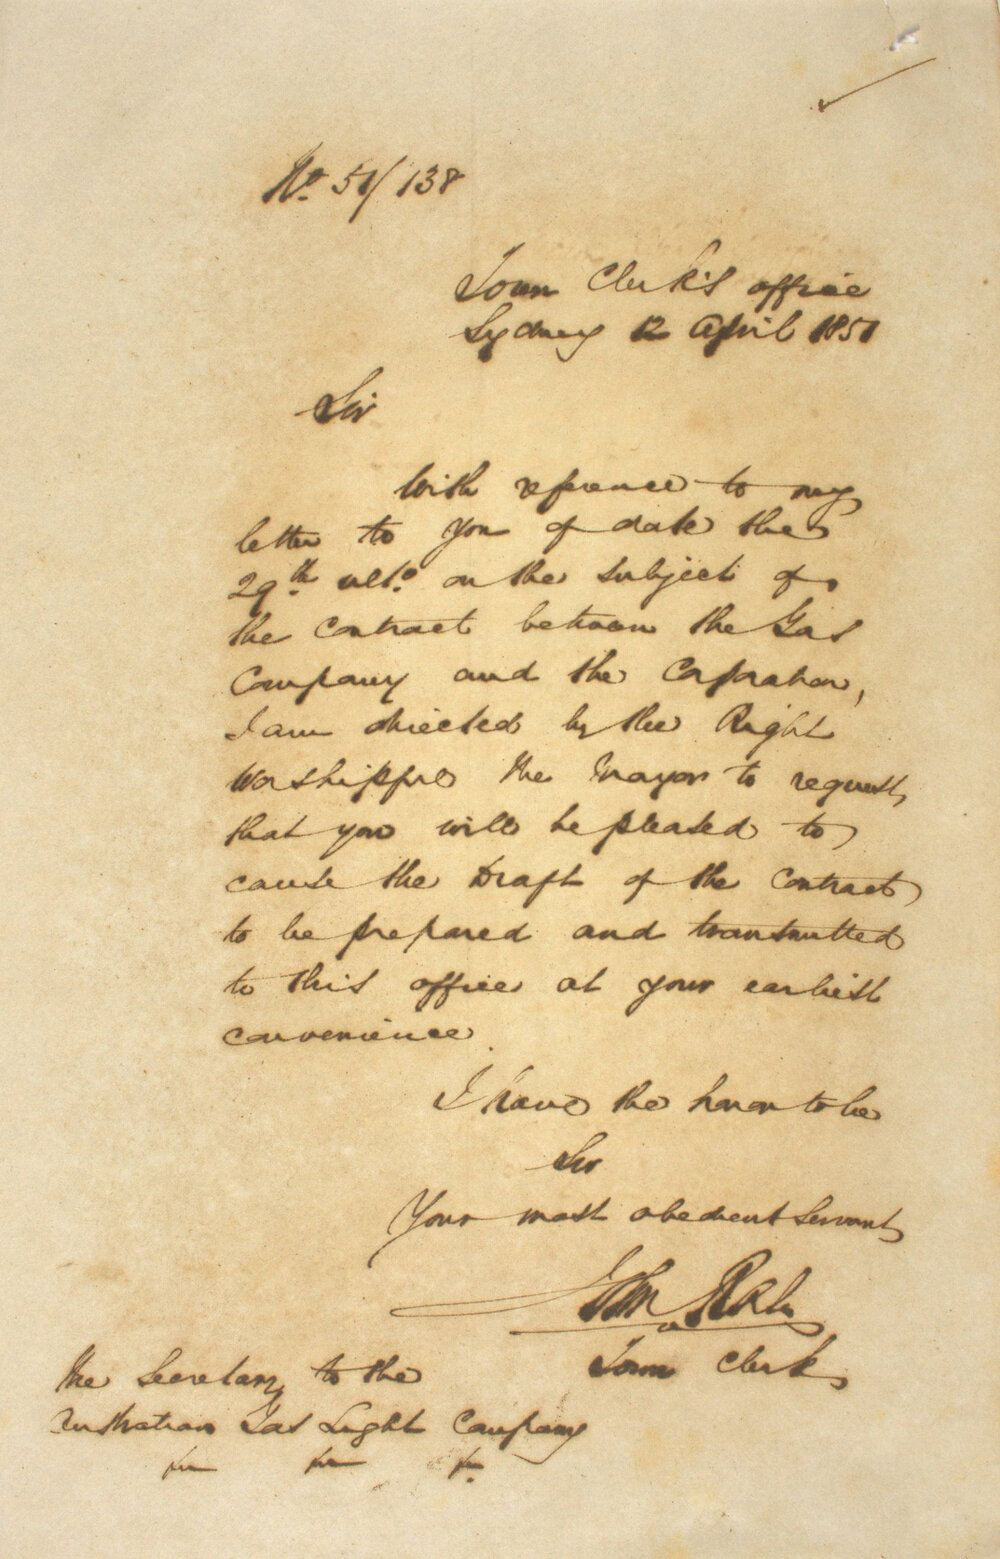 No. 51/138
Town Clerk's office
Sydney 12 April 1851
Sir
With reference to my
letter to you of date the
29th ulto. on the subject of
the contract between the Gas
Company and the Corporation,
I am directed by the Right
Worshipful the Mayor to request
that you will be pleased to
cause the Draft of the contract
to be prepared and transmitted
to this office at your earliest
convenience.
I have the honor to be
Sir
Your most obedient Servant
John Rae
Town Clerk
The Secretary to the
Australian Gas Light Company